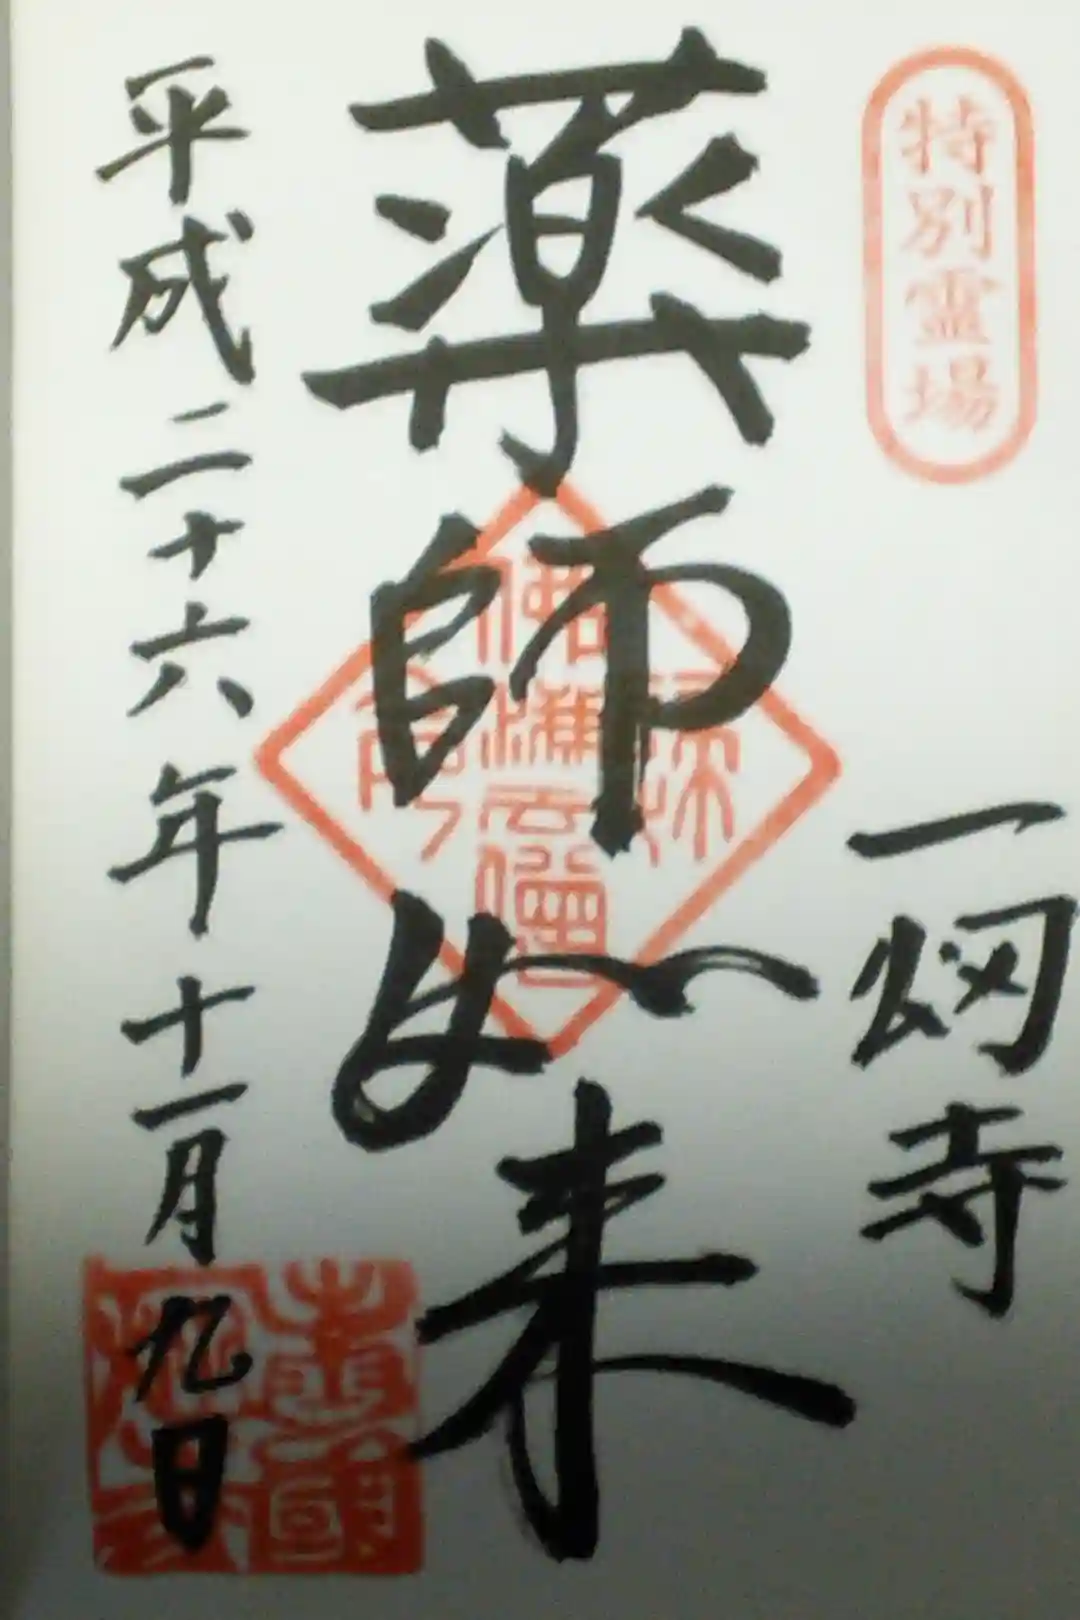 特別霊場
一畑寺
薬師如来
佛法僧
平成二十六年十一月九日